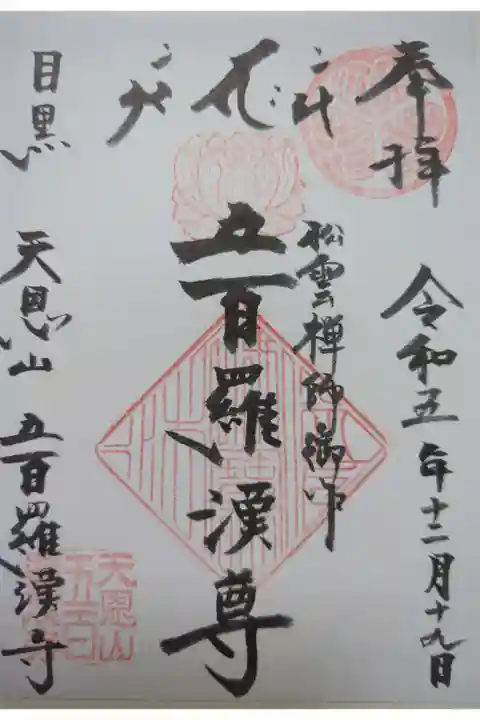 奉拝
令和五年十二月十九日
松雲禅師御作
五百羅漢尊
目黒 天恩山 五百羅漢寺
天恩山
五百